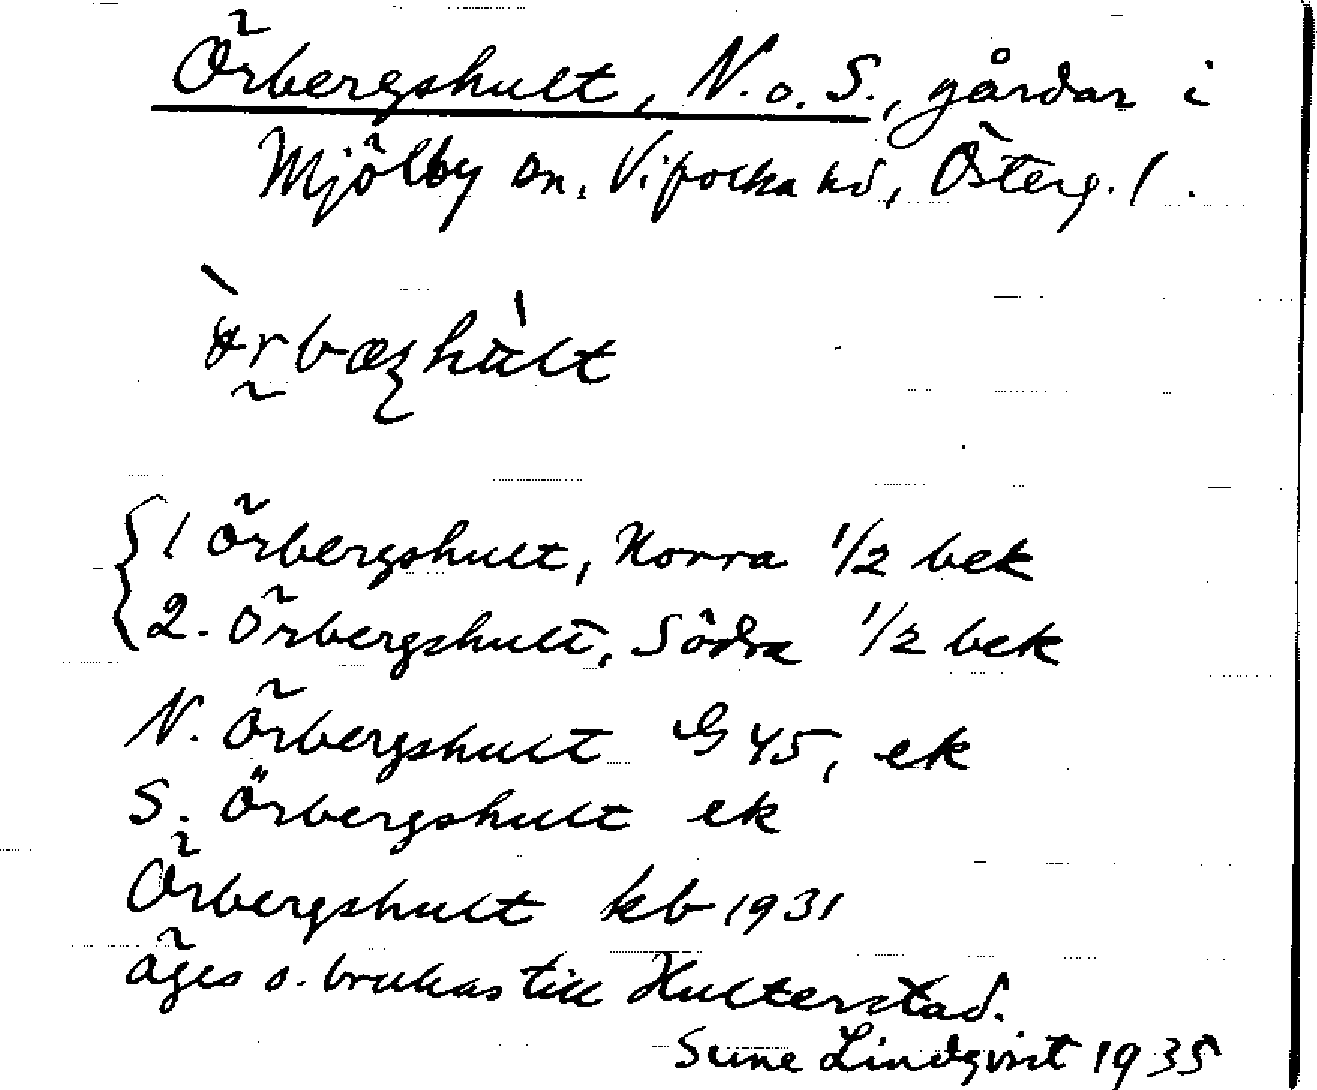 Örbergshult, N. o. S., gårdar i
Mjölby sn, Vifolka hd, Österg. l.
1 Örbergshult, Norra 1/2 bek
2. Örbergshult, Södra 1/2 bek
N. Örbergshult G 45, ek
S. Örbergshult ek
Örbergshult kb 1931
äges o. brukas till Hulterstad.
Sune Lindqvist 1935